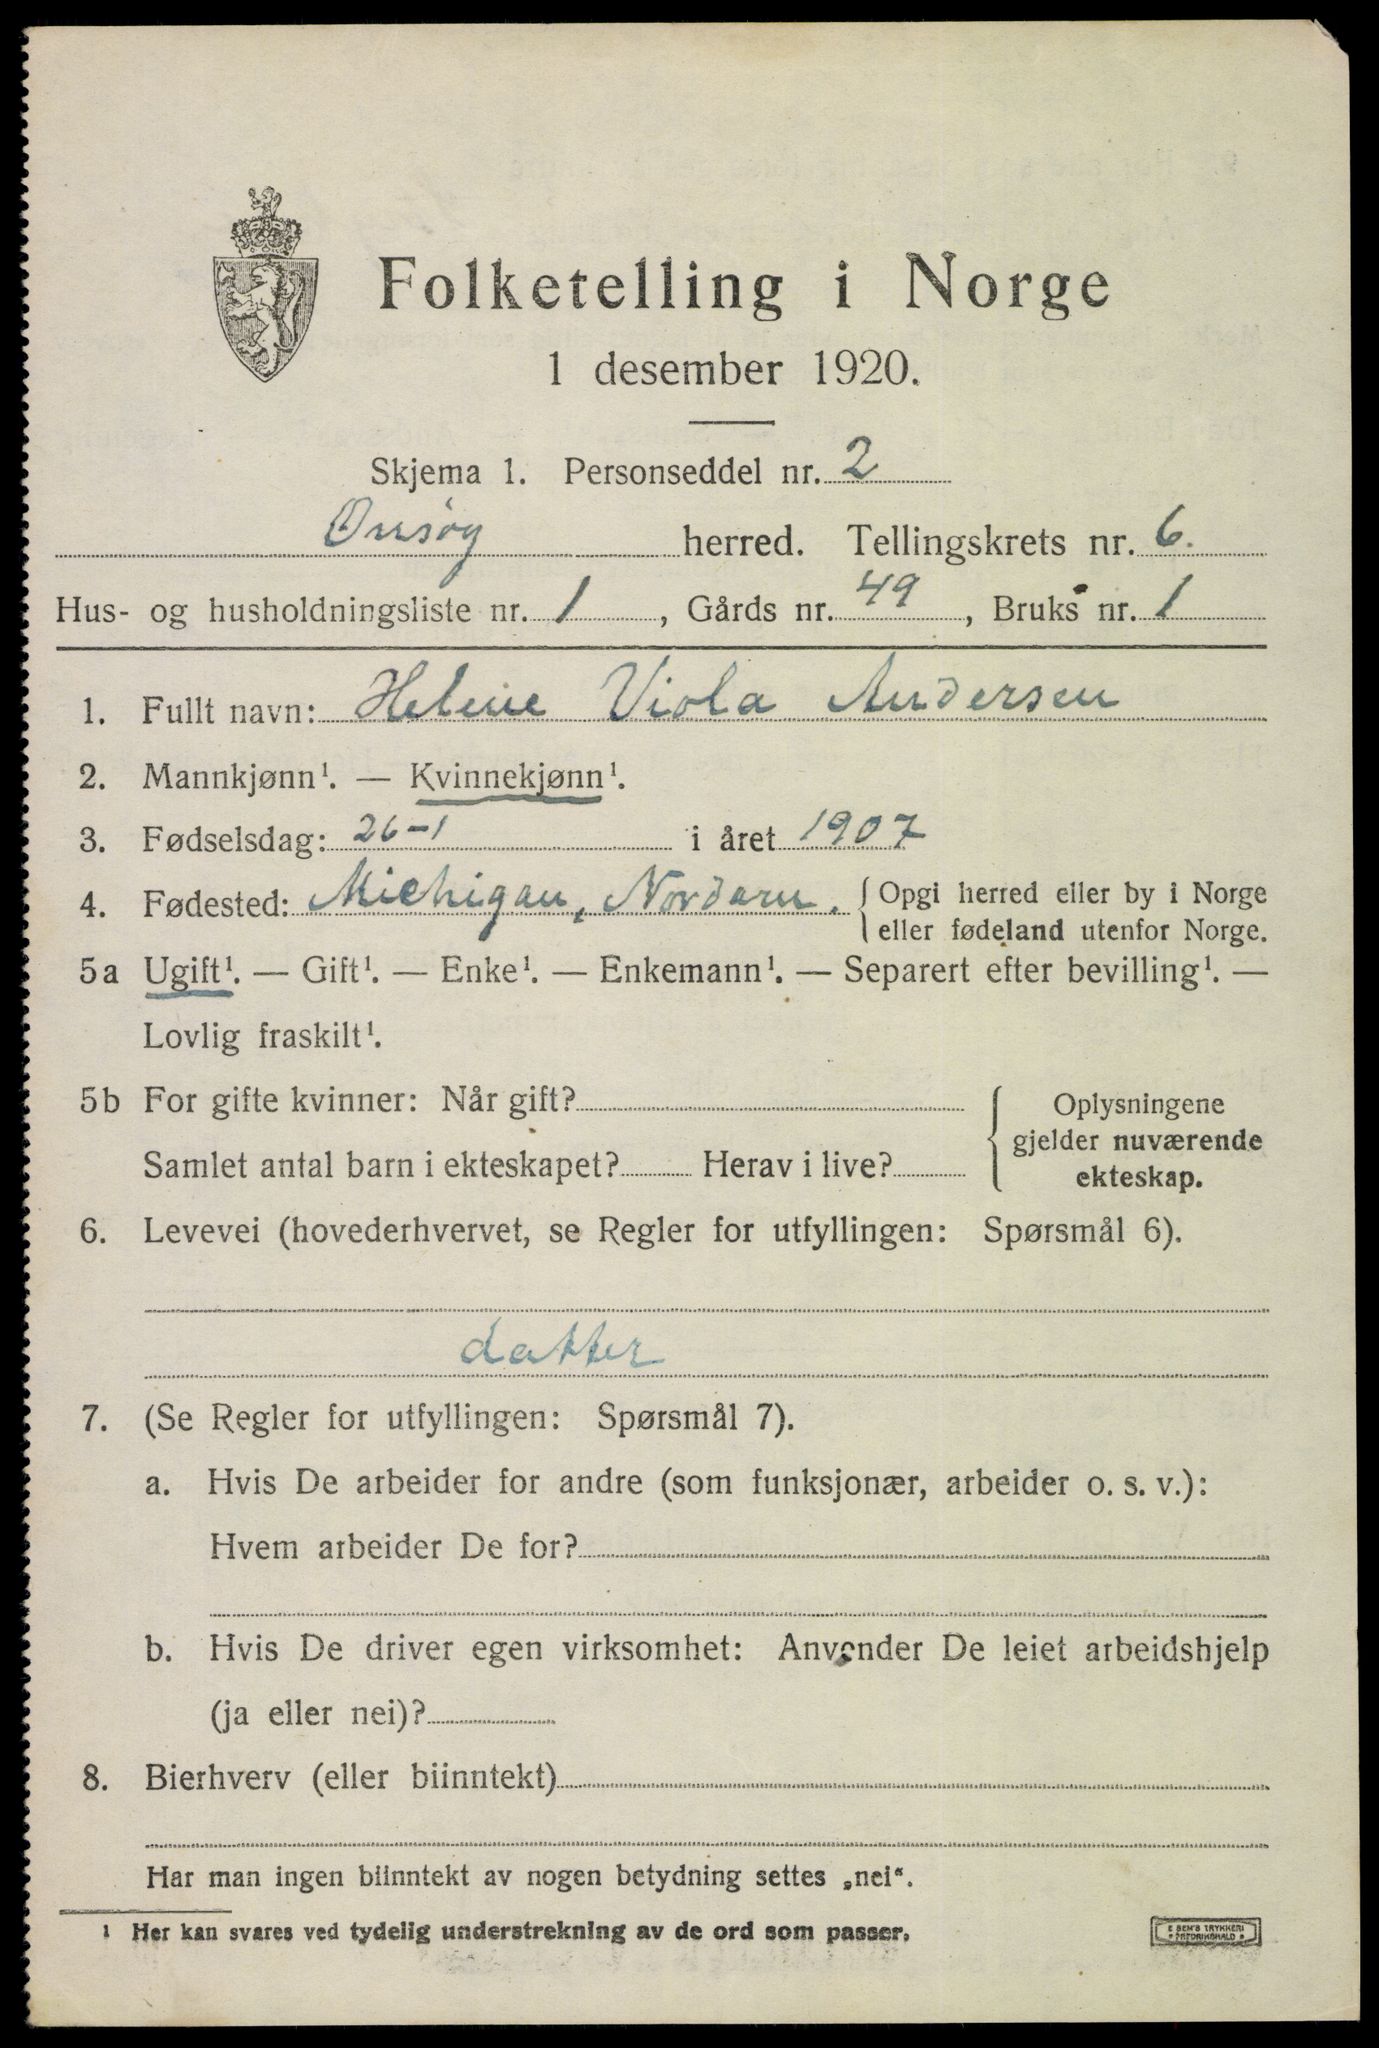 Folketelling i Norge
1 desember 1920.
Skjema 1. Personseddel nr. 2
Onsøy herred. Tellingskrets nr. 6.
Hus- og husholdningsliste nr. 1, Gårds nr. 49, Bruks nr. 1
1. Fullt navn: Helene Viola Andersen
2. Mannkjønn¹. — Kvinnekjønn¹.
3. Fødselsdag: 26-1 i året 1907
4. Fødested: Michigan, Nordam. { Opgi herred eller by i Norge
eller fødeland utenfor Norge.
5a Ugift¹. — Gift¹. — Enke¹. — Enkemann¹. — Separert efter bevilling¹. —
Lovlig fraskilt¹.
5b For gifte kvinner: Når gift?
Samlet antal barn i ekteskapet? Herav i live?
{ Oplysningene
gjelder nuværende
ekteskap.
6. Levevei (hovederhvervet, se Regler for utfyllingen: Spørsmål 6).
datter
7. (Se Regler for utfyllingen: Spørsmål 7).
a. Hvis De arbeider for andre (som funksjonær, arbeider o. s. v.):
Hvem arbeider De for?
b. Hvis De driver egen virksomhet: Anvender De leiet arbeidshjelp
(ja eller nei)?
8. Bierhverv (eller biinntekt)
Har man ingen biinntekt av nogen betydning settes „nei“.
¹ Her kan svares ved tydelig understrekning av de ord som passer.
E SEM'S TRYKKERI
FREDRIKSHALD